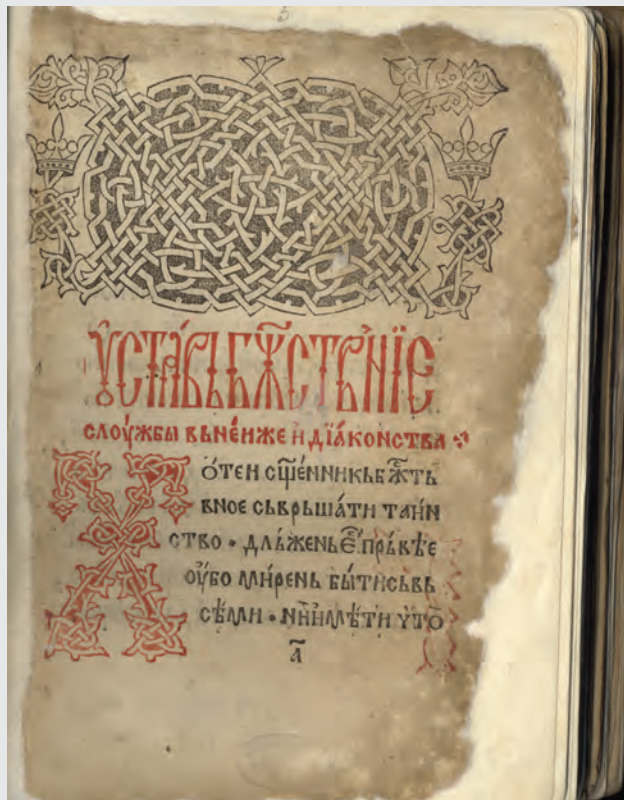 оу҆ста́вь бж҃ствⷩ҇ніе
слоу́жбы вь не́иже и҆ дїа́конства
Хо́теи сщ҃е́нникь бж҃ть
вное сьврьша́ти таи́н
ство • дль́жень е҆с҃. прь́вѣе
оу҆́бо ми́рень бы́ти сьвь
сѣ́ми • не и҆мѣ́ти что̀
а҃